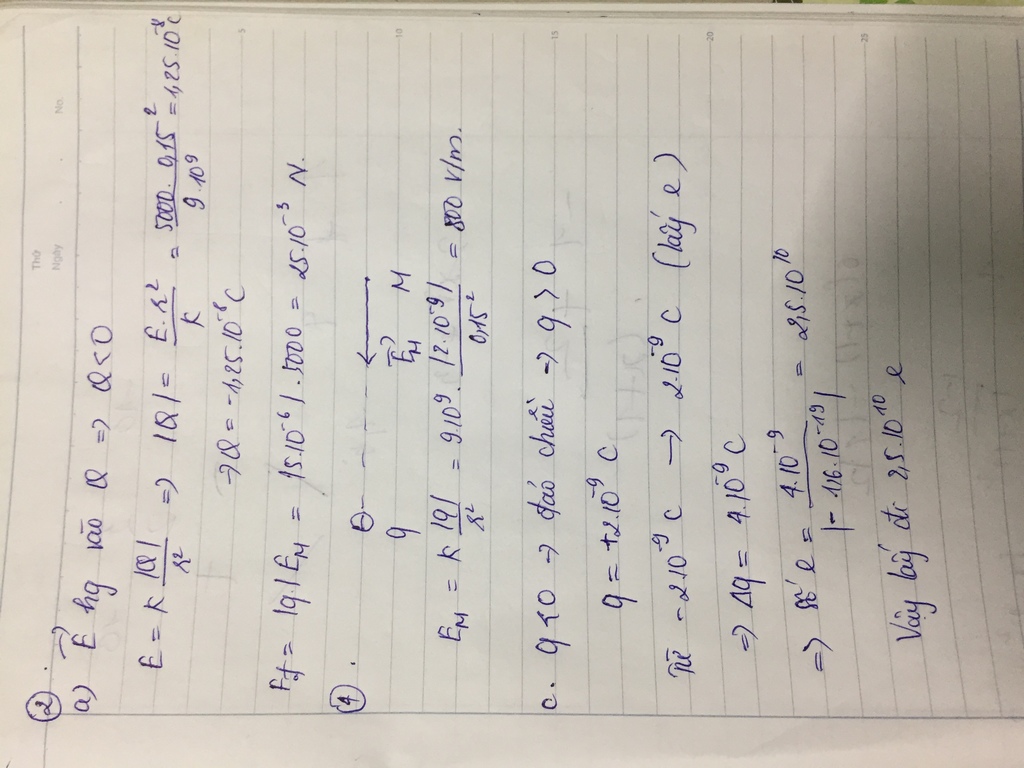 Thứ
Ngày . . No.
② .
a) E⃗ hg vào Q => Q<0
E = K |Q|/r² => |Q| = E.r²/K = 5000.0,15²/9.10⁹ = 1,25.10⁻⁸C
→ Q = -1,25.10⁻⁸C
Fđ = |q|E_M = |5.10⁻⁶|.5000 = 25.10⁻³ N.
④ .
⊖ - - - - ←
q E⃗_M M
E_M = K |q|/r² = 9.10⁹. |2.10⁻⁹|/0,15² = 800 V/m.
5
10
c. q<0 → đảo chiều → q>0
15
q = +2.10⁻⁹ C
Từ -2.10⁻⁹ C → 2.10⁻⁹ C (lấy e)
20
=> Δq = 4.10⁻⁹ C
=> số e = 4.10⁻⁹/|-1,6.10⁻¹⁹| = 2,5.10¹⁰
25
Vậy lấy đi 2,5.10¹⁰ e